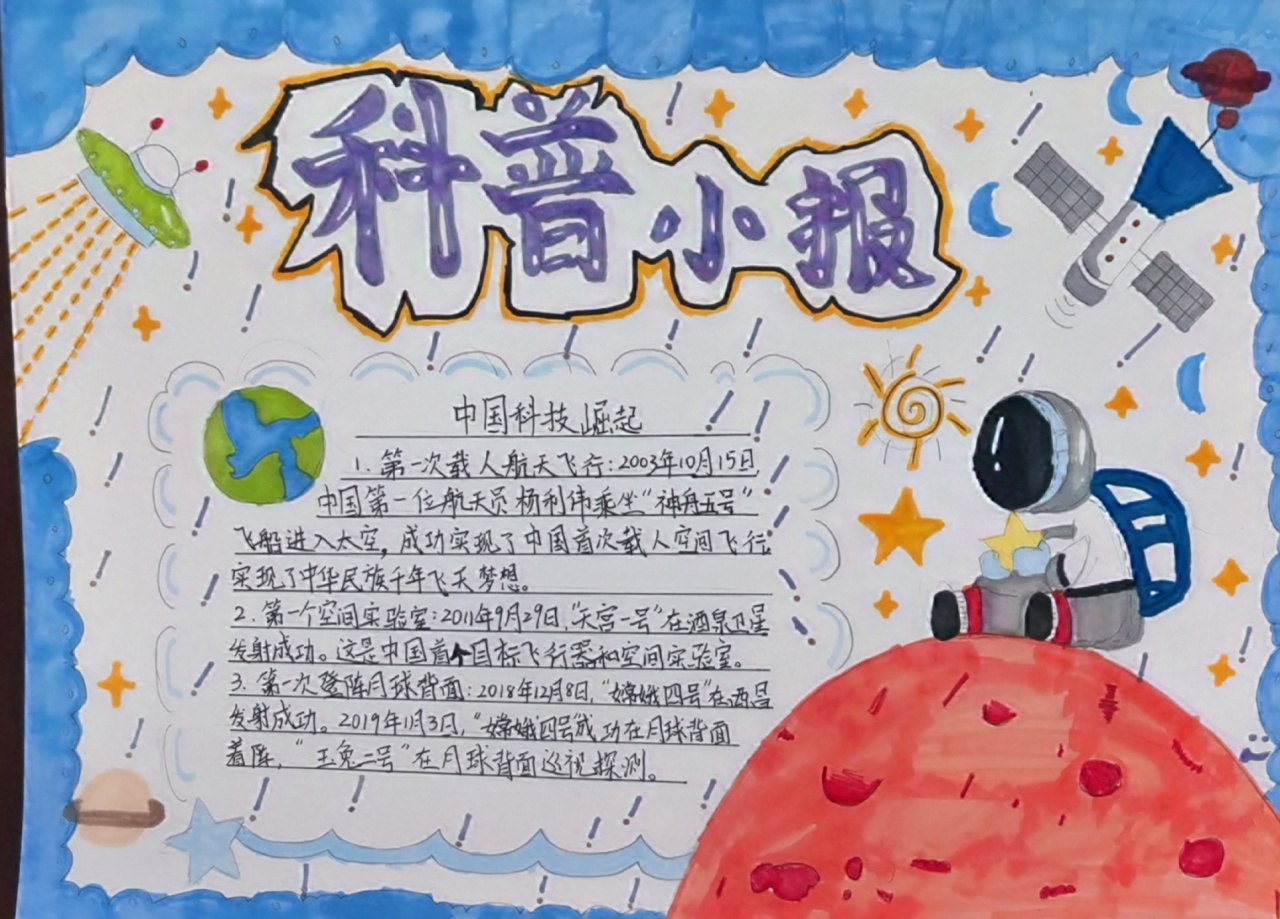 科普小报
中国科技崛起
1.第一次载人航天飞行:2003年10月15日
中国第一位航天员杨利伟乘坐“神舟五号”
飞船进入太空,成功实现了中国首次载人空间飞行,
实现了中华民族千年飞天梦想。
2.第一个空间实验室:2011年9月29日,“天宫一号”在酒泉卫星
发射成功。这是中国首个目标飞行器和空间实验室。
3.第一次登陆月球背面:2018年12月8日,“嫦娥四号”在西昌
发射成功。2019年1月3日,“嫦娥四号成功在月球背面
着陆,“玉兔二号”在月球背面巡视探测。